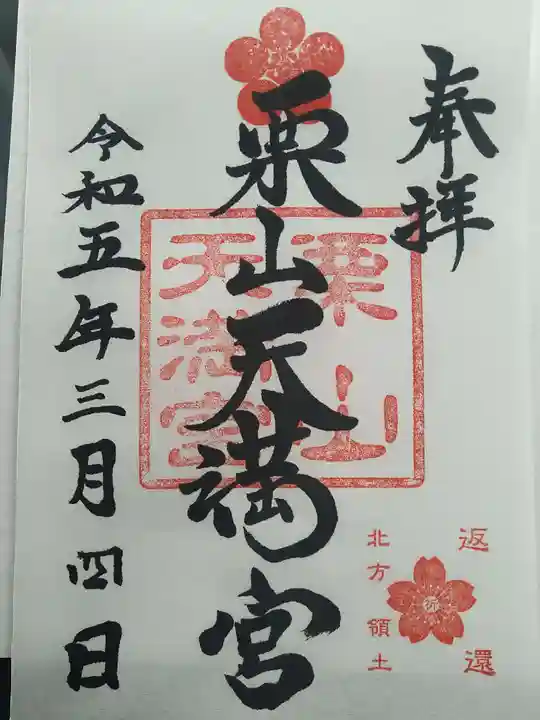 奉拝
栗山天満宮
栗山
天満宮
令和五年三月四日
返還
北方領土
祈